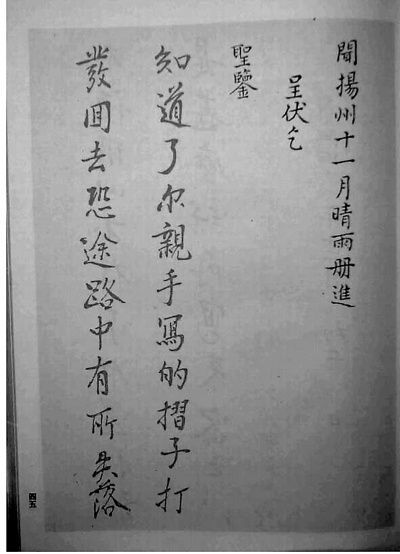 聞揚州十一月晴雨册進
呈伏乞
聖鑒
知道了尔親手寫的摺子打
發囬去恐途路中有所失落
四五